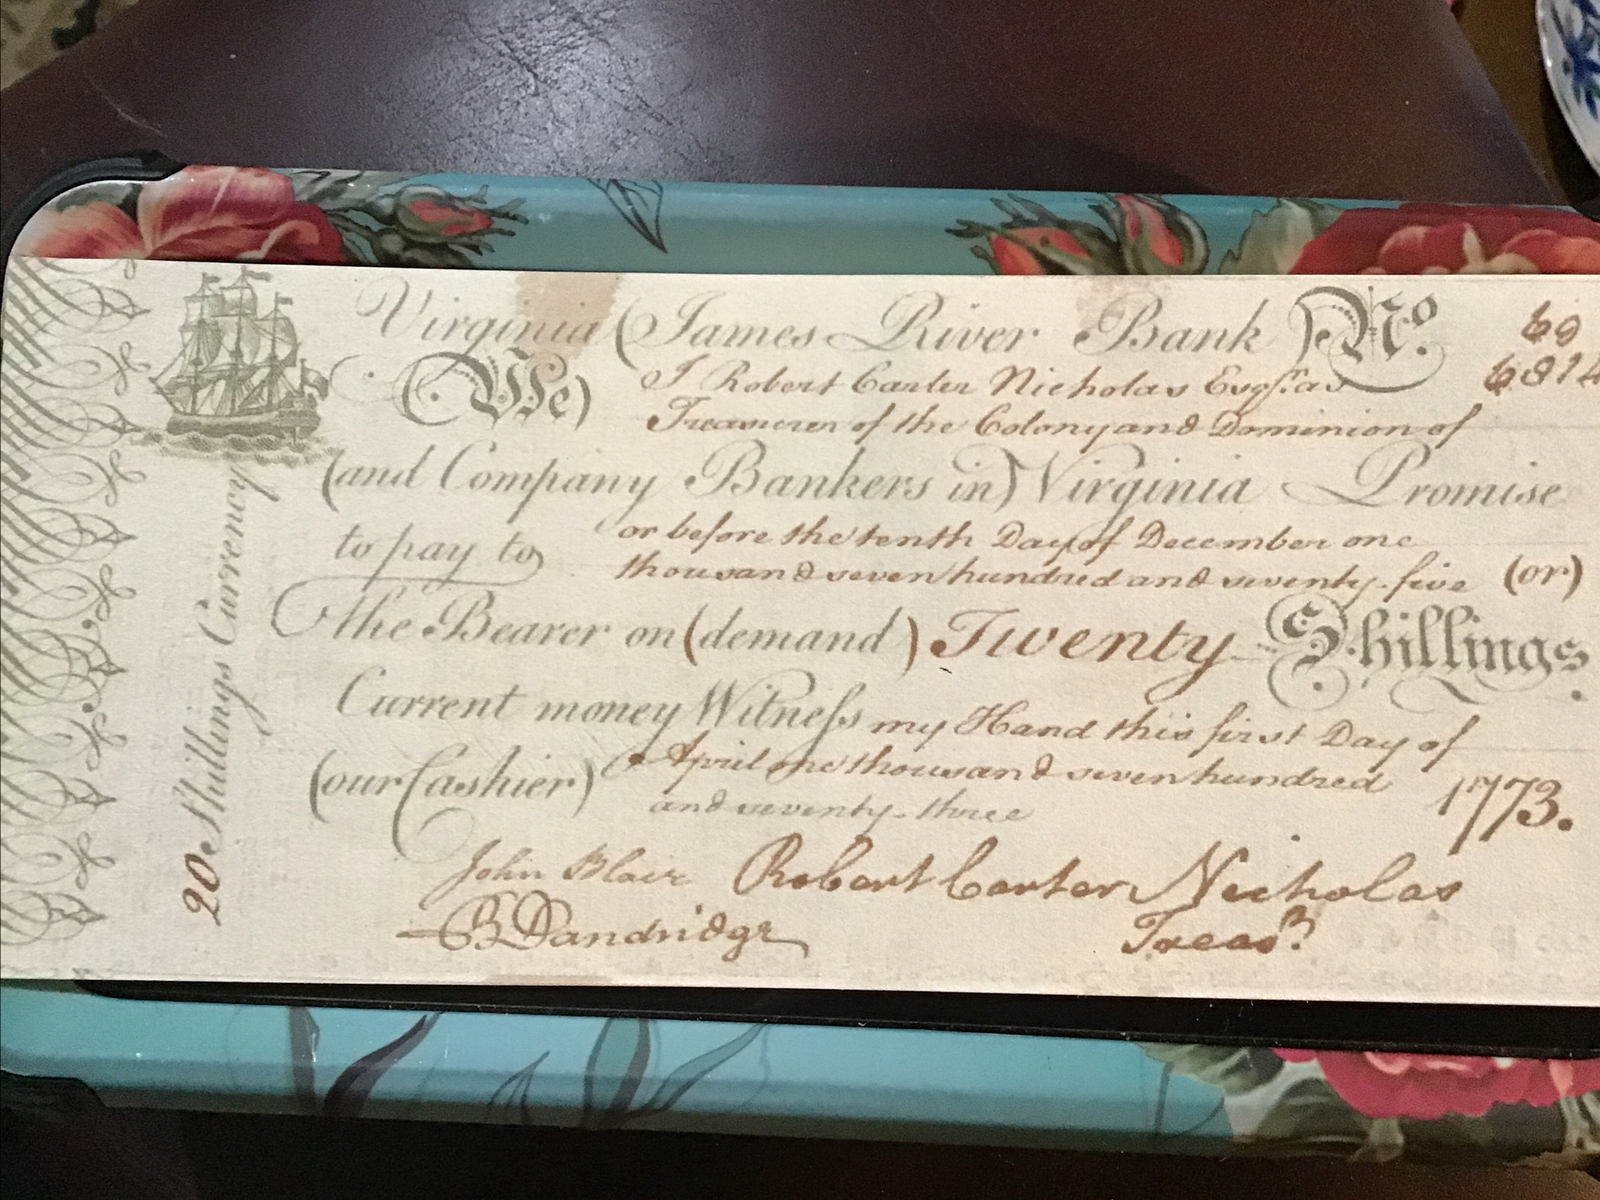 Virginia (James River Bank) No. 69
(We) I Robert Carter Nicholas Esqr. as 6814
Treasurer of the Colony and Dominion of
(and Company Bankers in) Virginia Promise
to pay to or before the tenth Day of December one
thousand seven hundred and seventy-five (or)
the Bearer on (demand) Twenty Shillings
Current money Witness my Hand this first Day of
(our Cashier) April one thousand seven hundred
and seventy-three 1773.
John Blair Robert Carter Nicholas
B Dandridge Treasr.
20 Shillings Currency